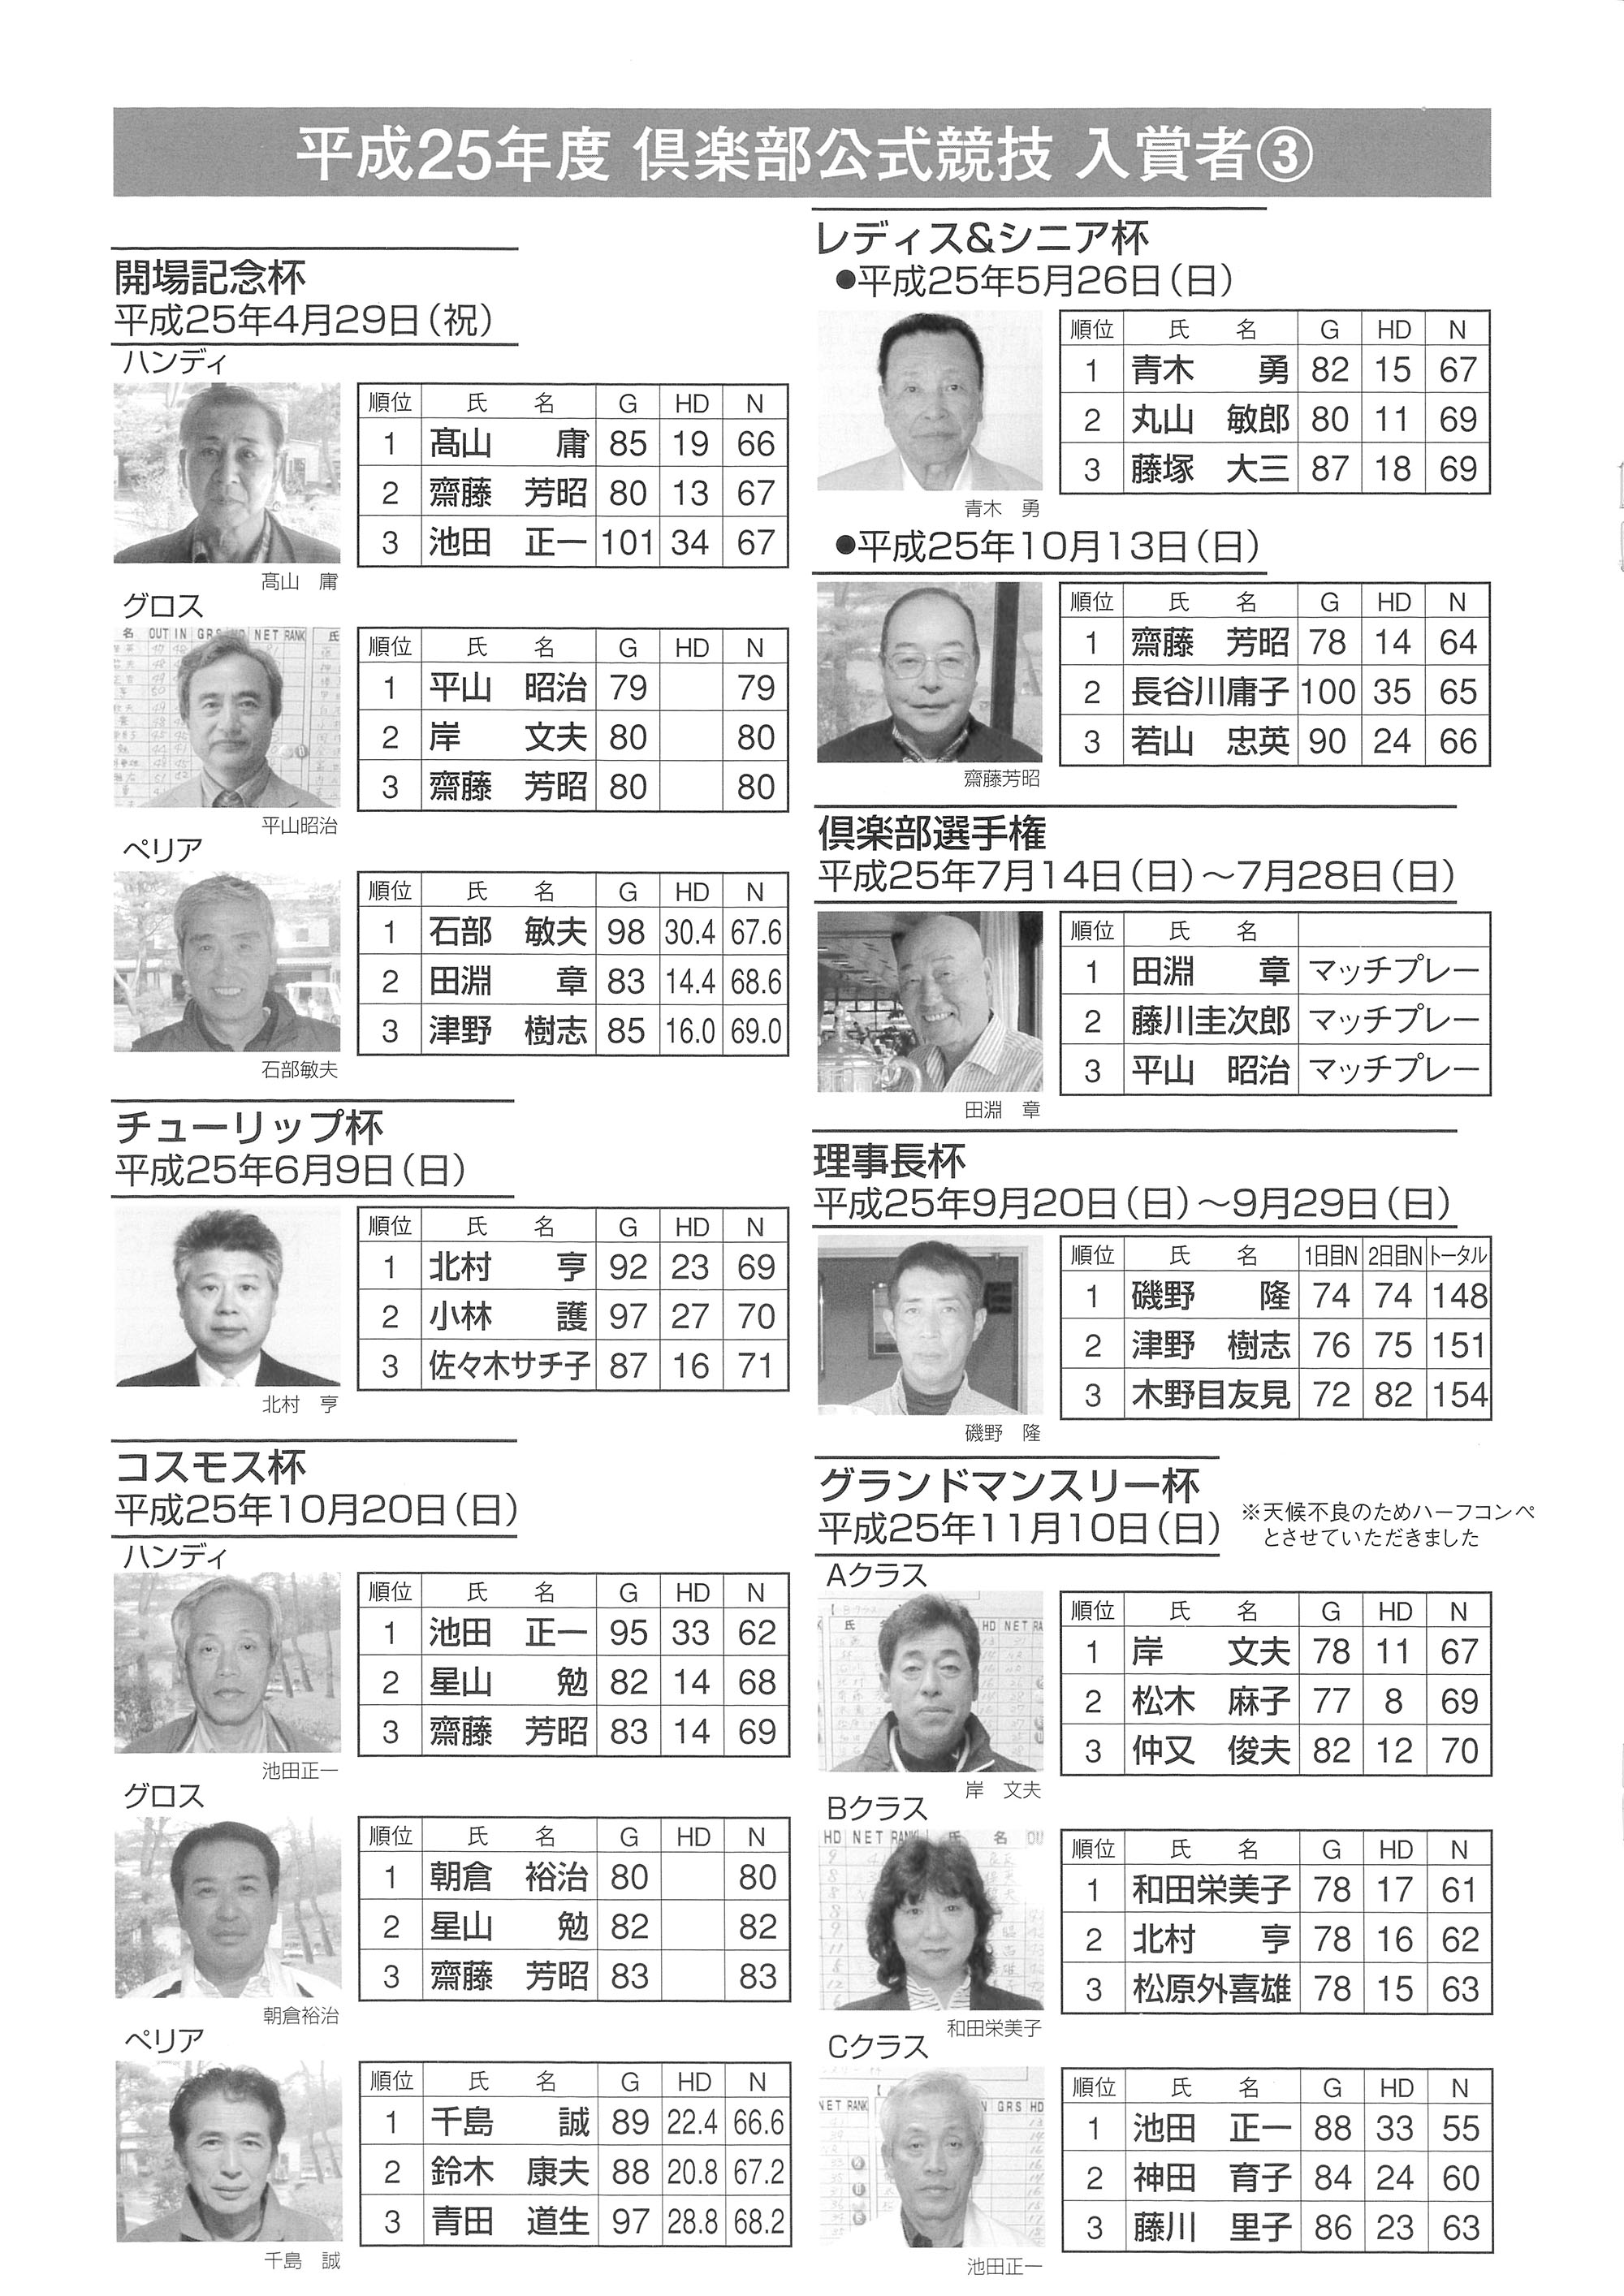 平成25年度 倶楽部公式競技 入賞者③
開場記念杯
平成25年4月29日（祝）
ハンディ
順位 氏 名 G HD N
1 髙山 庸 85 19 66
2 齋藤 芳昭 80 13 67
3 池田 正一 101 34 67
髙山 庸
グロス
名 OUT IN GRS NET RANK 氏
順位 氏 名 G HD N
1 平山 昭治 79 79
2 岸 文夫 80 80
3 齋藤 芳昭 80 80
平山昭治
ペリア
順位 氏 名 G HD N
1 石部 敏夫 98 30.4 67.6
2 田淵 章 83 14.4 68.6
3 津野 樹志 85 16.0 69.0
石部敏夫
チューリップ杯
平成25年6月9日（日）
順位 氏 名 G HD N
1 北村 亨 92 23 69
2 小林 護 97 27 70
3 佐々木サチ子 87 16 71
北村 亨
コスモス杯
平成25年10月20日（日）
ハンディ
順位 氏 名 G HD N
1 池田 正一 95 33 62
2 星山 勉 82 14 68
3 齋藤 芳昭 83 14 69
池田正一
グロス
順位 氏 名 G HD N
1 朝倉 裕治 80 80
2 星山 勉 82 82
3 齋藤 芳昭 83 83
朝倉裕治
ペリア
順位 氏 名 G HD N
1 千島 誠 89 22.4 66.6
2 鈴木 康夫 88 20.8 67.2
3 青田 道生 97 28.8 68.2
千島 誠
レディス&シニア杯
●平成25年5月26日（日）
順位 氏 名 G HD N
1 青木 勇 82 15 67
2 丸山 敏郎 80 11 69
3 藤塚 大三 87 18 69
青木 勇
●平成25年10月13日（日）
順位 氏 名 G HD N
1 齋藤 芳昭 78 14 64
2 長谷川庸子 100 35 65
3 若山 忠英 90 24 66
齋藤芳昭
倶楽部選手権
平成25年7月14日（日）～7月28日（日）
順位 氏 名
1 田淵 章 マッチプレー
2 藤川圭次郎 マッチプレー
3 平山 昭治 マッチプレー
田淵 章
理事長杯
平成25年9月20日（日）～9月29日（日）
順位 氏 名 1日目N 2日目N トータル
1 磯野 隆 74 74 148
2 津野 樹志 76 75 151
3 木野目友見 72 82 154
磯野 隆
グランドマンスリー杯
平成25年11月10日（日）
※天候不良のためハーフコンペ
とさせていただきました
Aクラス
氏 HD NET RA
順位 氏 名 G HD N
1 岸 文夫 78 11 67
2 松木 麻子 77 8 69
3 仲又 俊夫 82 12 70
岸 文夫
Bクラス
HD NET RANK 氏 名 OU
順位 氏 名 G HD N
1 和田栄美子 78 17 61
2 北村 亨 78 16 62
3 松原外喜雄 78 15 63
和田栄美子
Cクラス
NET RANK GRS HD
順位 氏 名 G HD N
1 池田 正一 88 33 55
2 神田 育子 84 24 60
3 藤川 里子 86 23 63
池田正一